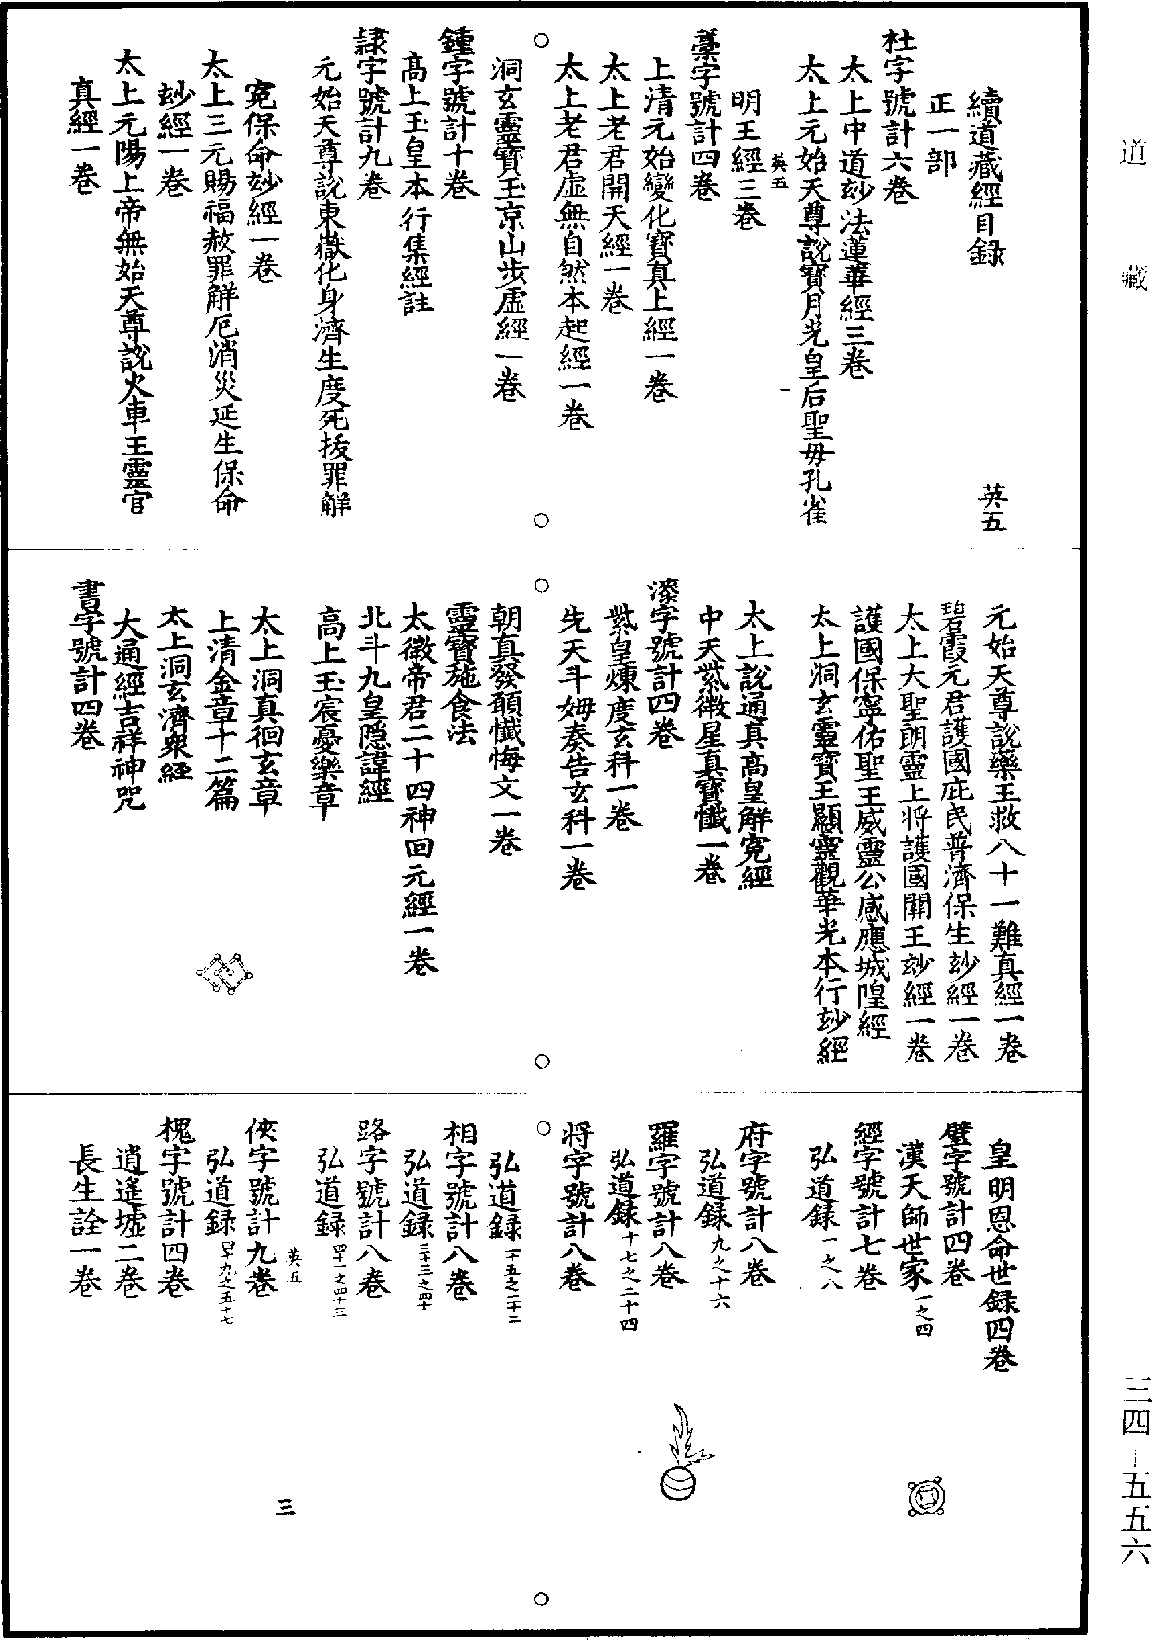 道藏
續道藏經目録 英五
正一部
杜字號計六卷
太上中道玅法蓮華經三卷
太上元始天尊説寶月光皇后聖母孔雀
英五
明王經三卷
藁字號計四卷
上清元始變化寶真上經一卷
太上老君開天經一卷
太上老君虛無自然本起經一卷
洞玄靈寶玉京山步虛經一卷
鍾字號計十卷
高上玉皇本行集經註
隷字號計九卷
元始天尊説東嶽化身濟生度死拔罪解
寃保命玅經一卷
太上三元賜福赦罪解厄消災延生保命
玅經一卷
太上元陽上帝無始天尊説火車王靈官
真經一卷
元始天尊説藥王救八十一難真經一卷
碧霞元君護國庇民普濟保生玅經一卷
太上大聖朗靈上將護國關王玅經一卷
護國保寧佑聖王威靈公感應城隍經
太上洞玄靈寶王顯靈觀華光本行玅經
太上說通真高皇解寃經
中天紫微星真寶懺一卷
漆字號計四卷
紫皇煉度玄科一卷
先天斗姆奏告玄科一卷
朝真發願懺悔文一卷
靈寶施食法
太微帝君二十四神回元經一卷
北斗九皇隱諱經
高上玉宸憂樂章
太上洞真徊玄章
上清金章十二篇
太上洞玄濟衆經
大通經吉祥神咒
書字號計四卷
皇明恩命世録四卷
壁字號計四卷
漢天師世家一之四
經字號計七卷
弘道録一之八
府字號計八卷
弘道録九之十六
羅字號計八卷
弘道録十七之二十四
將字號計八卷
弘道録二十五之三十二
相字號計八卷
弘道録三十三之四十
路字號計八卷
弘道録四十一之四十三
英五
俠字號計九卷
弘道録四十九之五十七
槐字號計四卷
逍遙墟二卷
長生詮一卷
三
三四-五五六